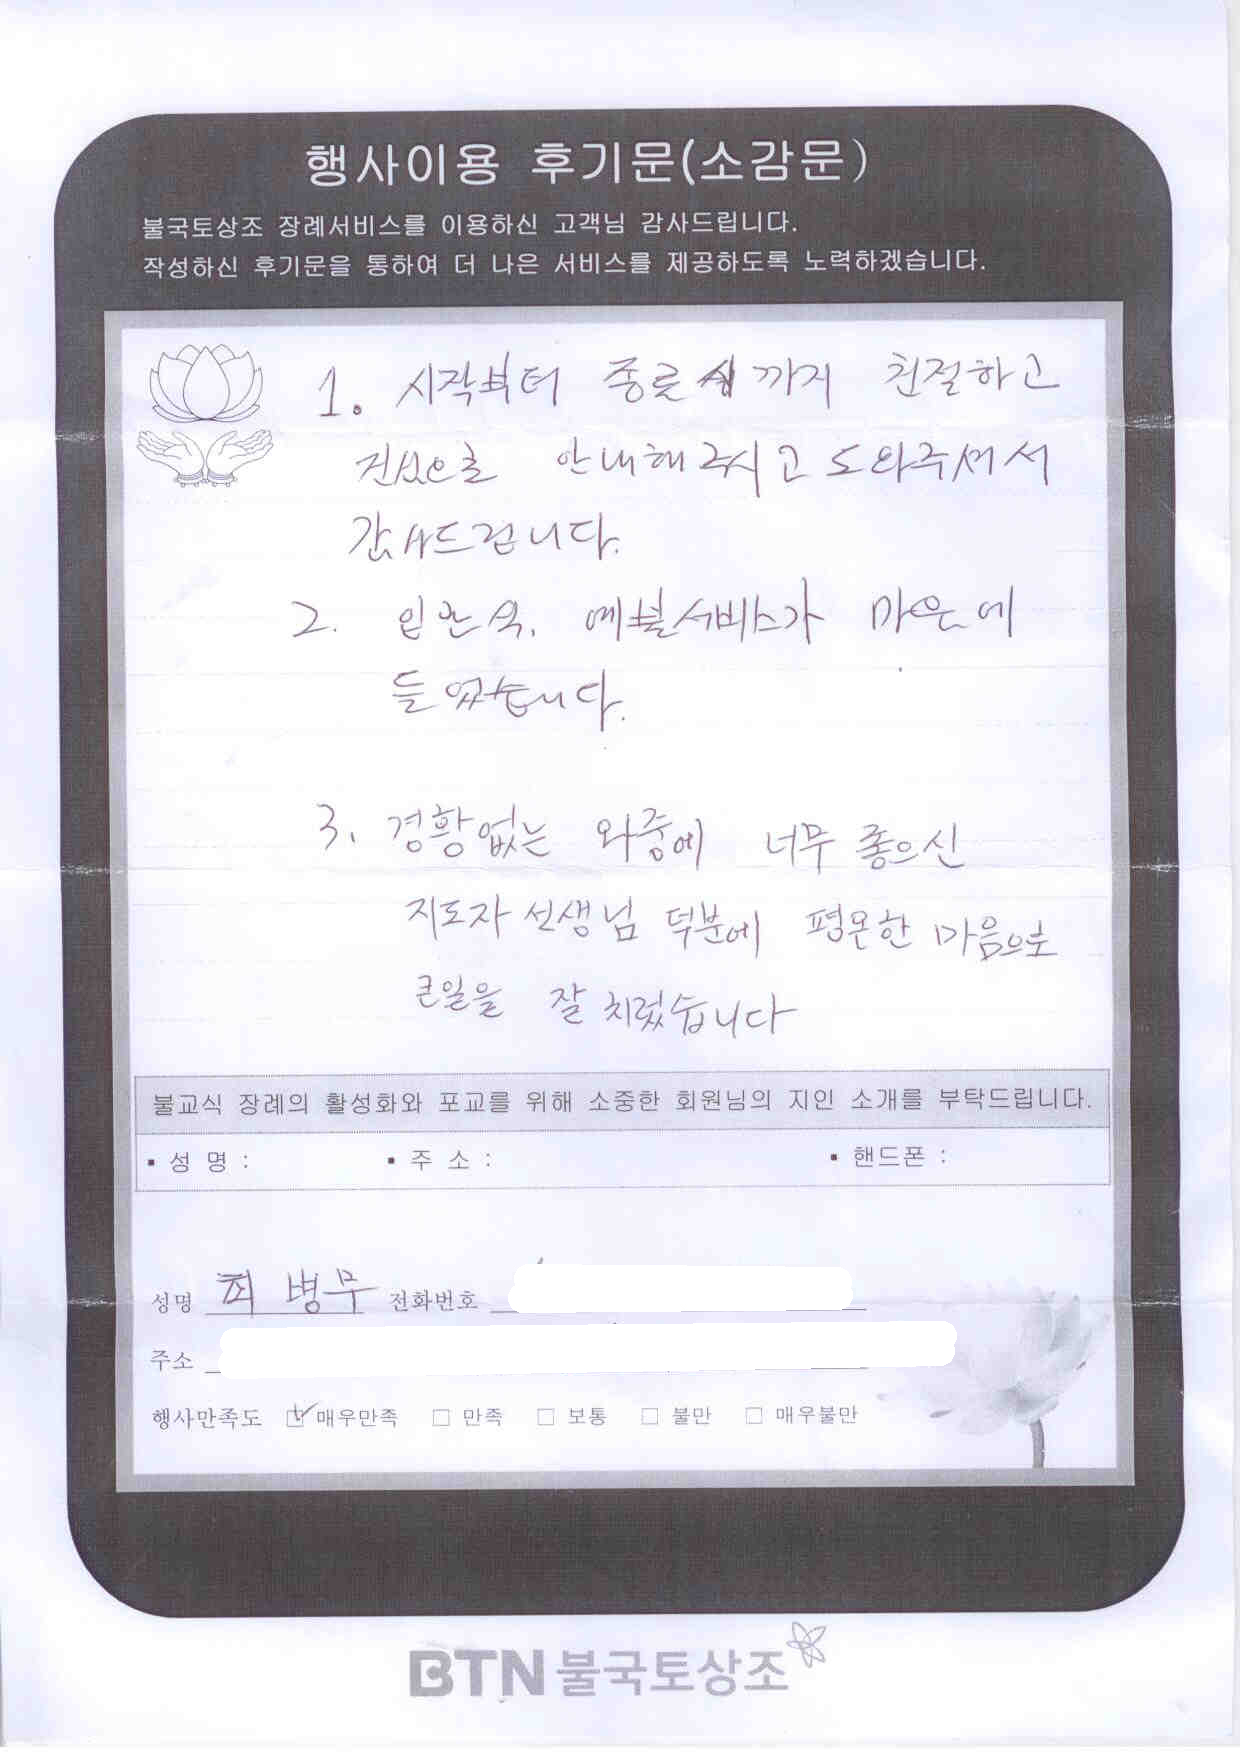 행사이용 후기문(소감문)
불국토상조 장례서비스를 이용하신 고객님 감사드립니다.
작성하신 후기문을 통하여 더 나은 서비스를 제공하도록 노력하겠습니다.
1. 시작부터 종료시까지 친절하고
진심으로 안내해주시고 도와주셔서
감사드립니다.
2. 입관식, 예불서비스가 마음에
들었습니다.
3. 경황없는 와중에 너무 좋으신
지도자 선생님 덕분에 평온한 마음으로
큰일을 잘 치렀습니다
불교식 장례의 활성화와 포교를 위해 소중한 회원님의 지인 소개를 부탁드립니다.
▪ 성 명 : ▪ 주 소 : ▪ 핸드폰 :
성명 최병무 전화번호
주소
행사만족도 ☑ 매우만족 □ 만족 □ 보통 □ 불만 □ 매우불만
BTN불국토상조